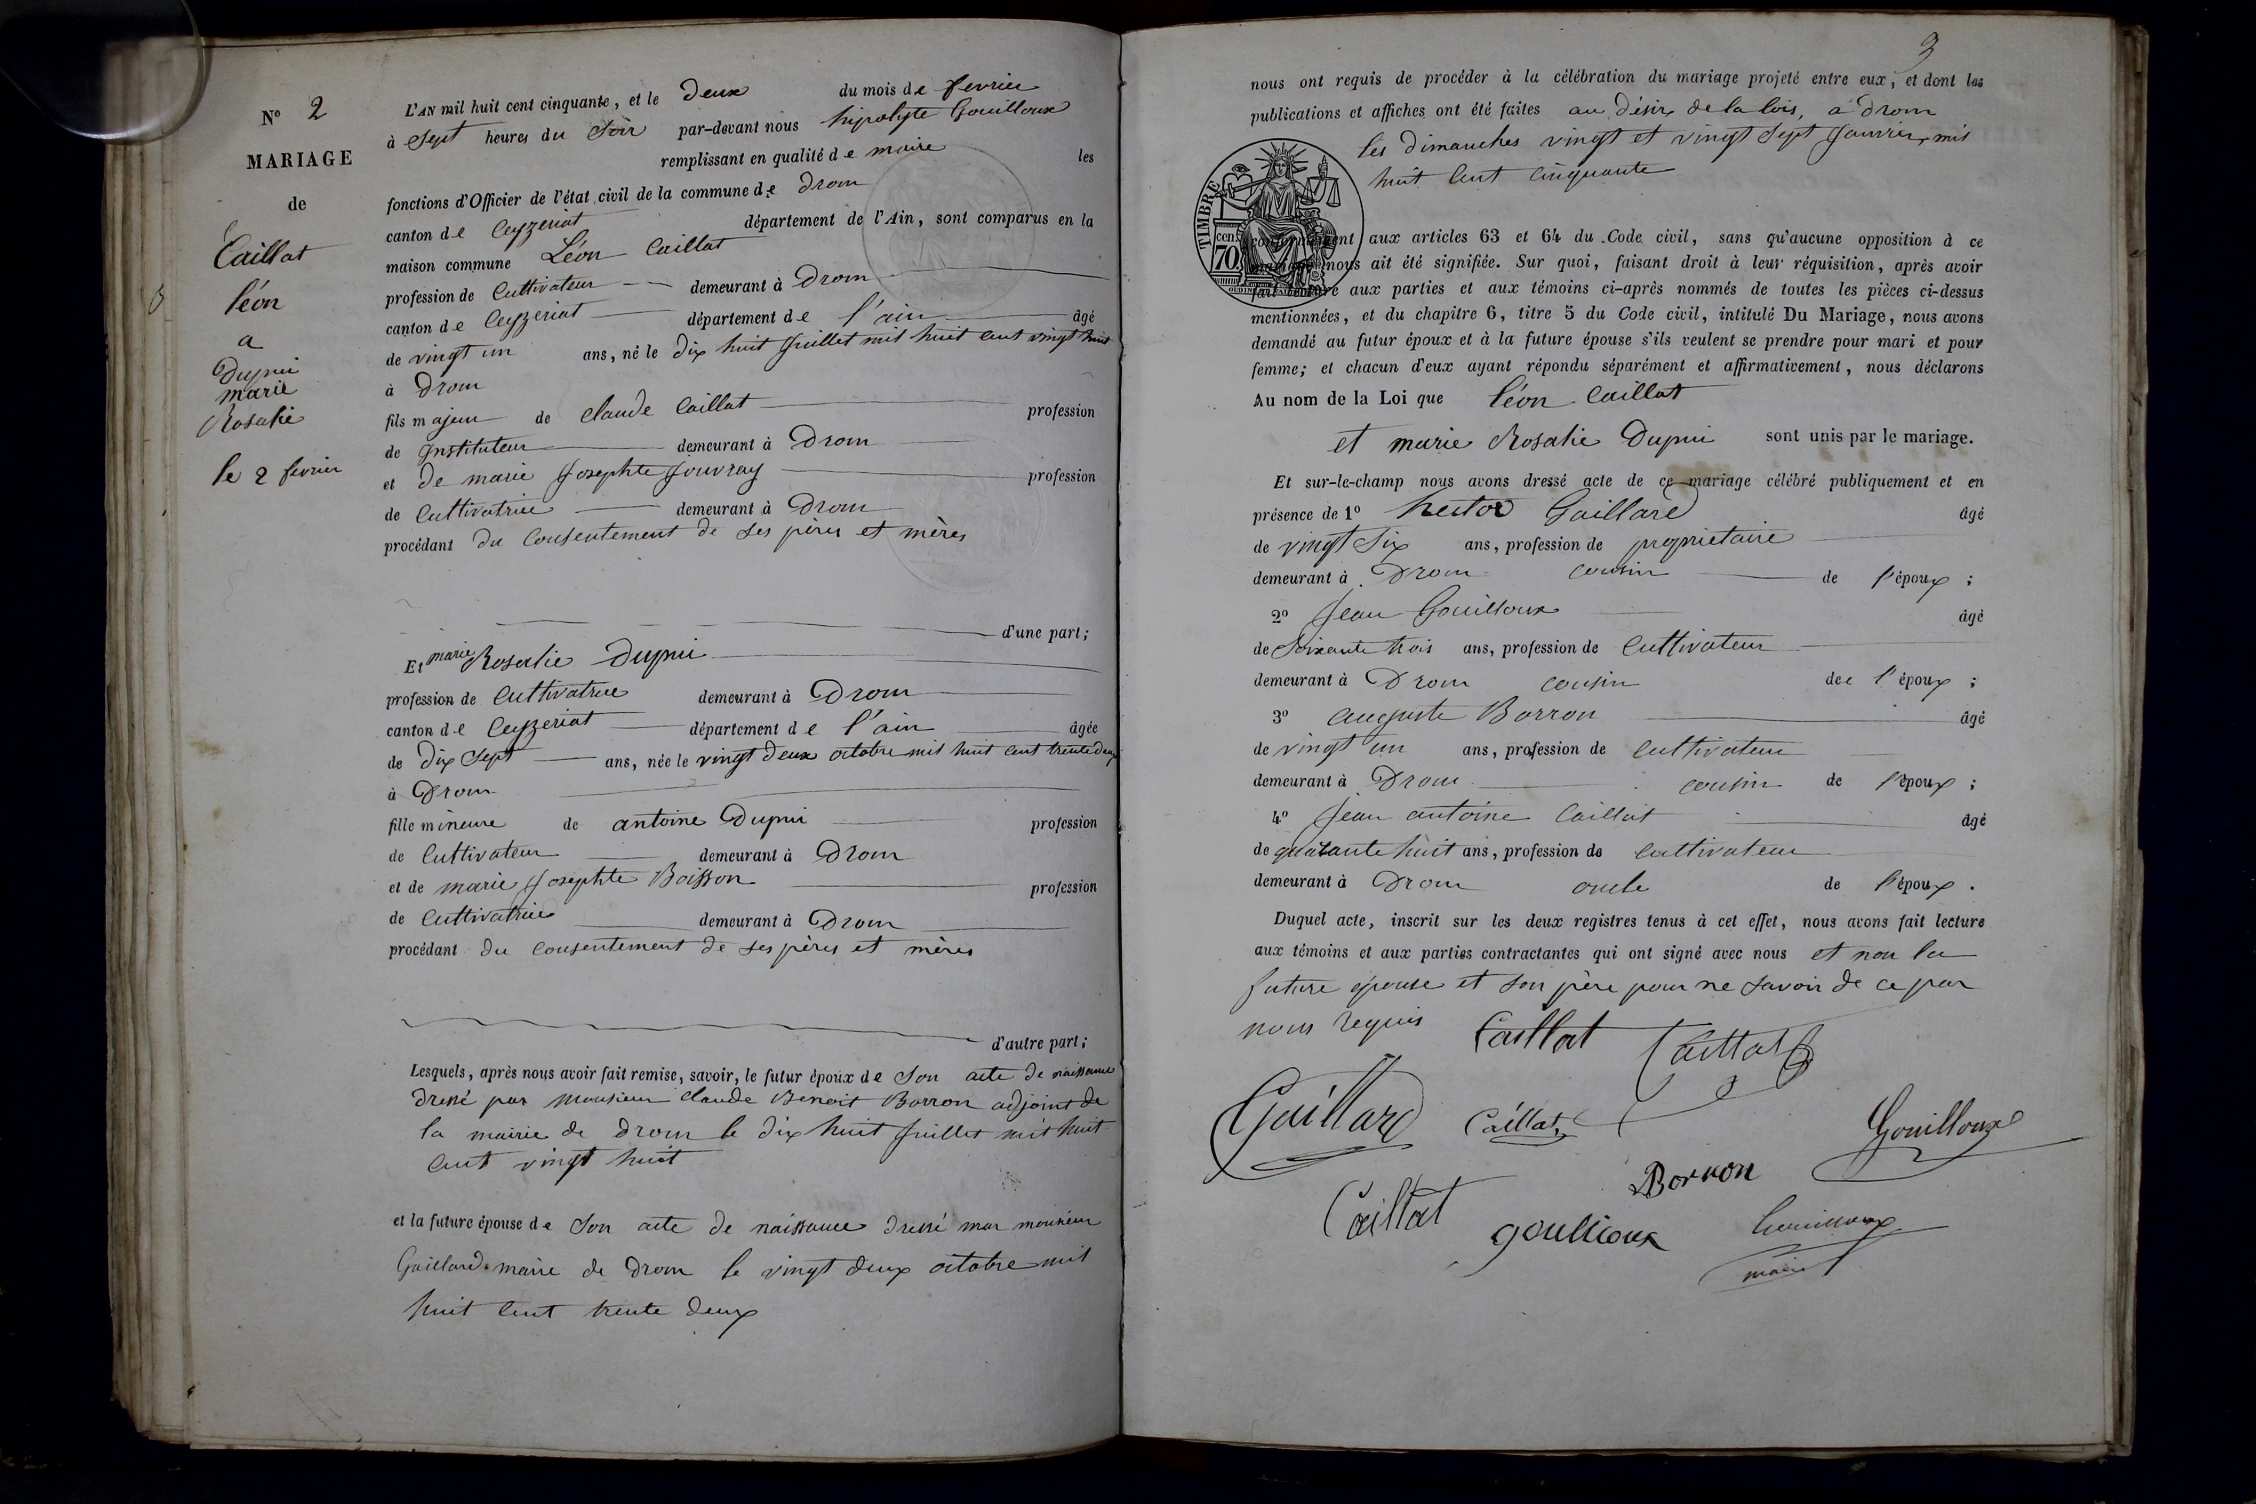 N° 2
MARIAGE
de
Caillat
léon
a
Dupui
marie
Rosalie
le 2 fevrier
L'AN mil huit cent cinquante, et le deux du mois de fevrier
à sept heures du soir par-devant nous hipolyte Gouilloux
remplissant en qualité de maire les
fonctions d'Officier de l'état civil de la commune de Drom
canton de Ceyzeriat département de l'Ain, sont comparus en la
maison commune Léon Caillat
profession de Cultivateur demeurant à Drom
canton de Ceyzeriat département de l'ain âgé
de vingt un ans, né le dix huit juillet mil huit cent vingt huit
à Drom
fils majeur de claude Caillat profession
de instituteur demeurant à Drom
et de marie josephte jouvray profession
de Cultivatrice demeurant à Drom
procédant du consentement de ses pères et mères
d'une part;
Et marie Rosalie Dupui
profession de Cultivatrice demeurant à Drom
canton de Ceyzeriat département de l'ain âgée
de dix sept ans, née le vingt deux octobre mil huit cent trente deux
à Drom
fille mineure de antoine Dupui profession
de Cultivateur demeurant à Drom
et de marie josephte Boisson profession
de Cultivatrice demeurant à Drom
procédant du consentement de ses pères et mères
d'autre part;
Lesquels, après nous avoir fait remise, savoir, le futur époux de son acte de naissance
dressé par monsieur claude Benoit Borron adjoint de
la mairie de Drom le dix huit juillet mil huit
cent vingt huit
et la future épouse de son acte de naissance dressé par monsieur
Gaillard maire de Drom le vingt deux octobre mil
huit cent trente deux
3
nous ont requis de procéder à la célébration du mariage projeté entre eux, et dont les
publications et affiches ont été faites au désir de la lois, à Drom
les dimanches vingt et vingt sept janvier, mil
huit cent cinquante
TIMBRE
cen. 70
conformément aux articles 63 et 64 du Code civil, sans qu'aucune opposition à ce
mariage nous ait été signifiée. Sur quoi, faisant droit à leur réquisition, après avoir
fait lecture aux parties et aux témoins ci-après nommés de toutes les pièces ci-dessus
mentionnées, et du chapitre 6, titre 5 du Code civil, intitulé Du Mariage, nous avons
demandé au futur époux et à la future épouse s'ils veulent se prendre pour mari et pour
femme; et chacun d'eux ayant répondu séparément et affirmativement, nous déclarons
Au nom de la Loi que léon Caillat
et marie Rosalie Dupui sont unis par le mariage.
Et sur-le-champ nous avons dressé acte de ce mariage célébré publiquement et en
présence de 1° hector Gaillard âgé
de vingt six ans, profession de proprietaire
demeurant à Drom cousin de l'époux;
2° jean Gouilloux âgé
de soixante trois ans, profession de Cultivateur
demeurant à Drom cousin de l'époux;
3° auguste Borron âgé
de vingt un ans, profession de cultivateur
demeurant à Drom cousin de l'époux;
4° jean antoine Caillat âgé
de quarante huit ans, profession de cultivateur
demeurant à Drom oncle de l'époux.
Duquel acte, inscrit sur les deux registres tenus à cet effet, nous avons fait lecture
aux témoins et aux parties contractantes qui ont signé avec nous et non la
future épouse et son père pour ne savoir de ce par
nous requis Caillat Caillat
Gaillard Caillat Gouilloux
Borron
Caillat goullioux Gouilloux
maire